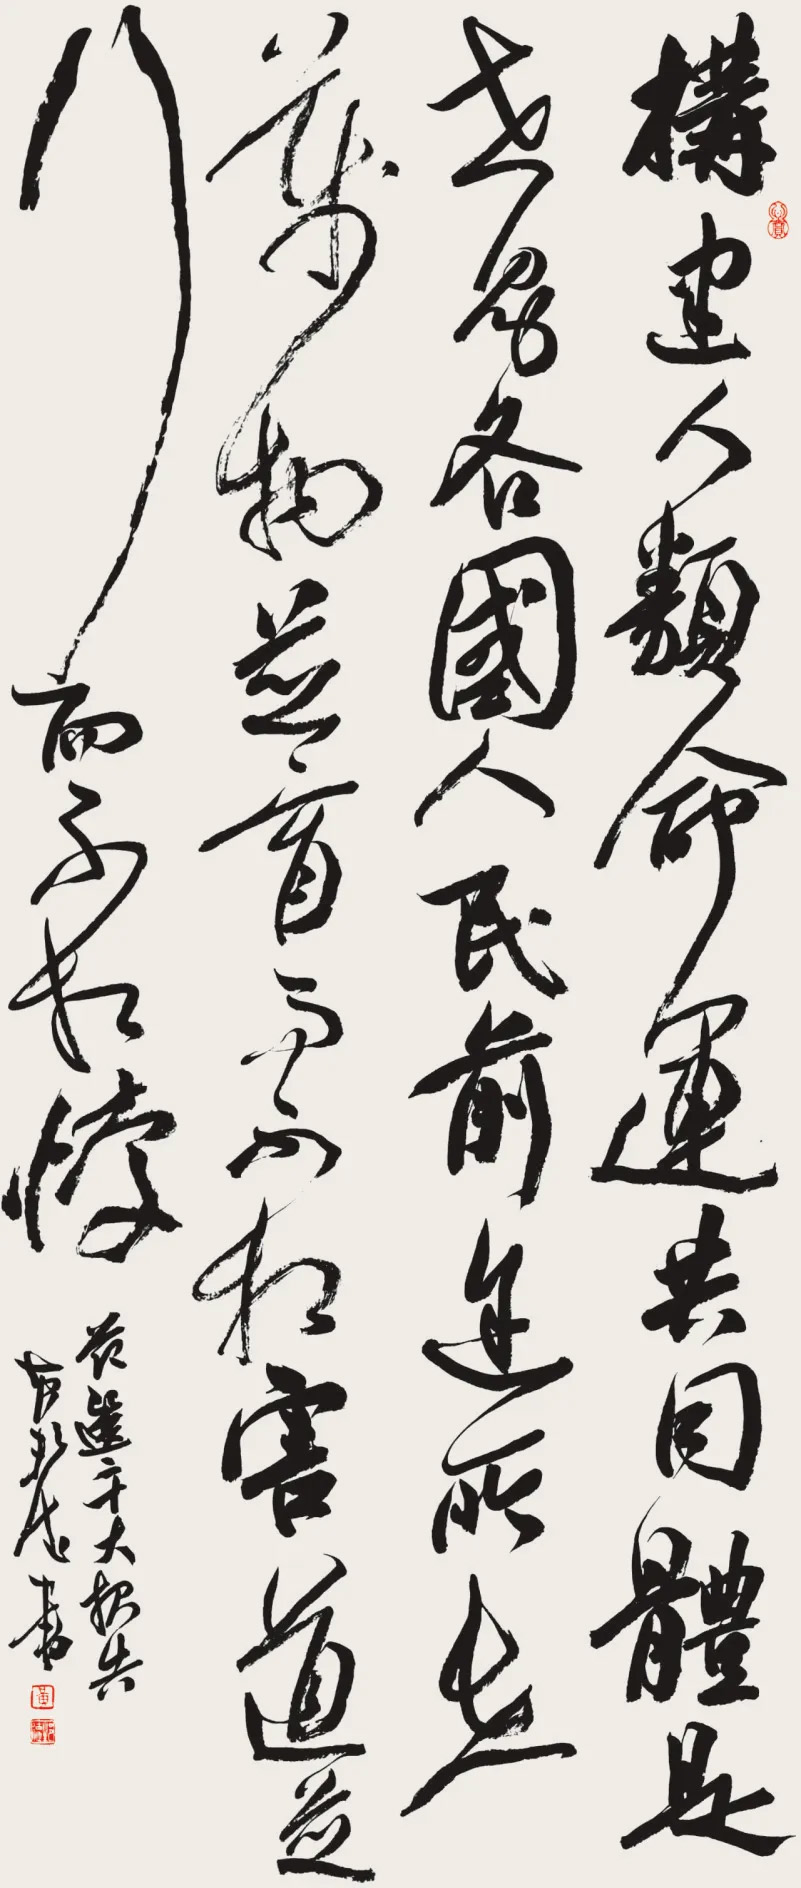 構建人類命運共同體是
世界各國人民前途所在
萬物並育而不相害道並
行而不相悖
節選二十大報告
書